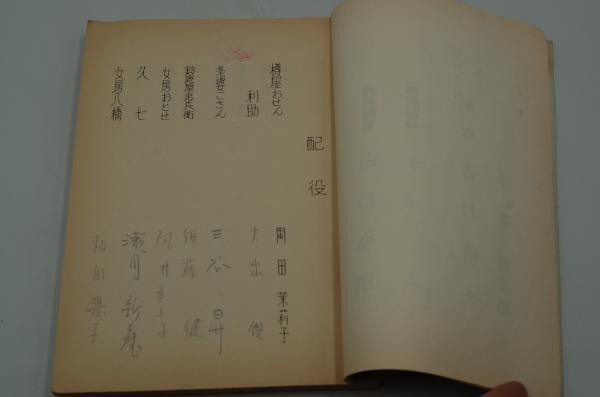 配役
樽屋おせん 岡田茉莉子
利助 大出俊
老婆こさん 三谷昇
鈴鹿屋忠兵衛 須藤健
女房おとせ 阿井美千子
久七 瀬月新蔵
女房八橋